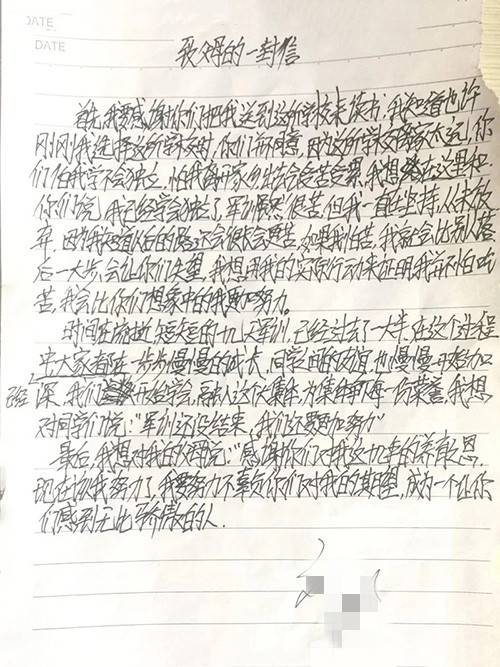 DATE
DATE
致父母的一封信
首先,我要感谢你们把我送到这所学校来读书,我知道也许
刚刚我选择这所学校时,你们并不同意,因为这所学校离家太远,你
们怕我学不会独立,怕我离家乡出去会受苦受累,我想在这里和
你们说,我已经学会独立了,军训虽然很苦,但我一直在坚持,从未放
弃,因为我知道以后的路还会很长会更苦,如果我怕苦,我就会比别人落
后一大步,会让你们失望,我想用我的实际行动来证明我并不怕吃
苦,我会比你们想象中的我更加努力。
时间在流逝,短短的九天军训,已经过去了一大半,在这个过程
中大家都在一步一步慢慢的成长,同学之间的友谊,也慢慢开始加
深,我们开始学会,融入这个集体,为集体争取每一份荣誉,我想
对同学们说:"军训还没结束,我们还要更加努力"
最后,我想对我的父母说:"感谢你们对我这九年的养育之恩,
现在换我努力了,我要努力不辜负你们对我的期望,成为一个让你
们感到无比骄傲的人.